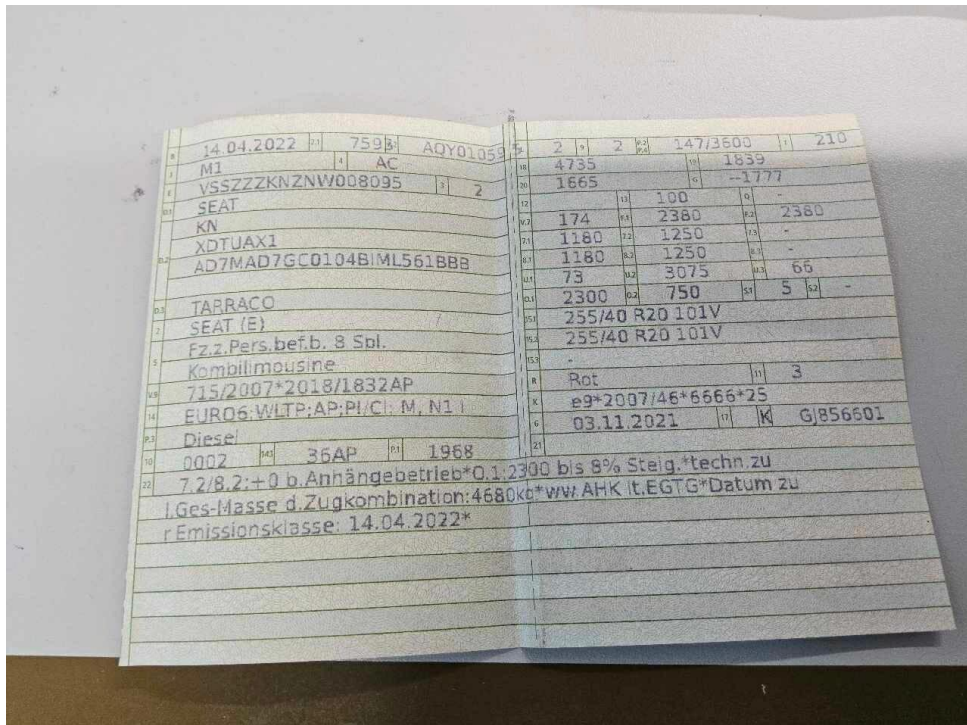 B 14.04.2022 2.1 7593 2.2 AQY01059
J M1 4 AC
E VSSZZZKNZNW008095 3 2
D.1 SEAT
KN
D.2 XDTUAX1
AD7MAD7GC0104BIML561BBB
D.3 TARRACO
2 SEAT (E)
5 Fz.z.Pers.bef.b. 8 Spl.
Kombilimousine
V.9 715/2007*2018/1832AP
14 EURO6;WLTP;AP;PI/CI; M, N1 I
P.3 Diesel
10 0002 14.1 36AP P.1 1968
L 2 9 2 P.2 P.4 147/3600 T 210
18 4735 19 1839
20 1665 G --1777
12 13 100 Q -
V.7 174 F.1 2380 F.2 2380
7.1 1180 7.2 1250 7.3 -
8.1 1180 8.2 1250 8.3 -
U.1 73 U.2 3075 U.3 66
O.1 2300 O.2 750 S.1 5 S.2 -
15.1 255/40 R20 101V
15.2 255/40 R20 101V
15.3 -
R Rot 11 3
K e9*2007/46*6666*25
6 03.11.2021 17 K GJ856601
21
22 7.2/8.2:+0 b.Anhängebetrieb*O.1:2300 bis 8% Steig.*techn.zu
l.Ges-Masse d.Zugkombination:4680kg*ww.AHK lt.EGTG*Datum zu
r Emissionsklasse: 14.04.2022*